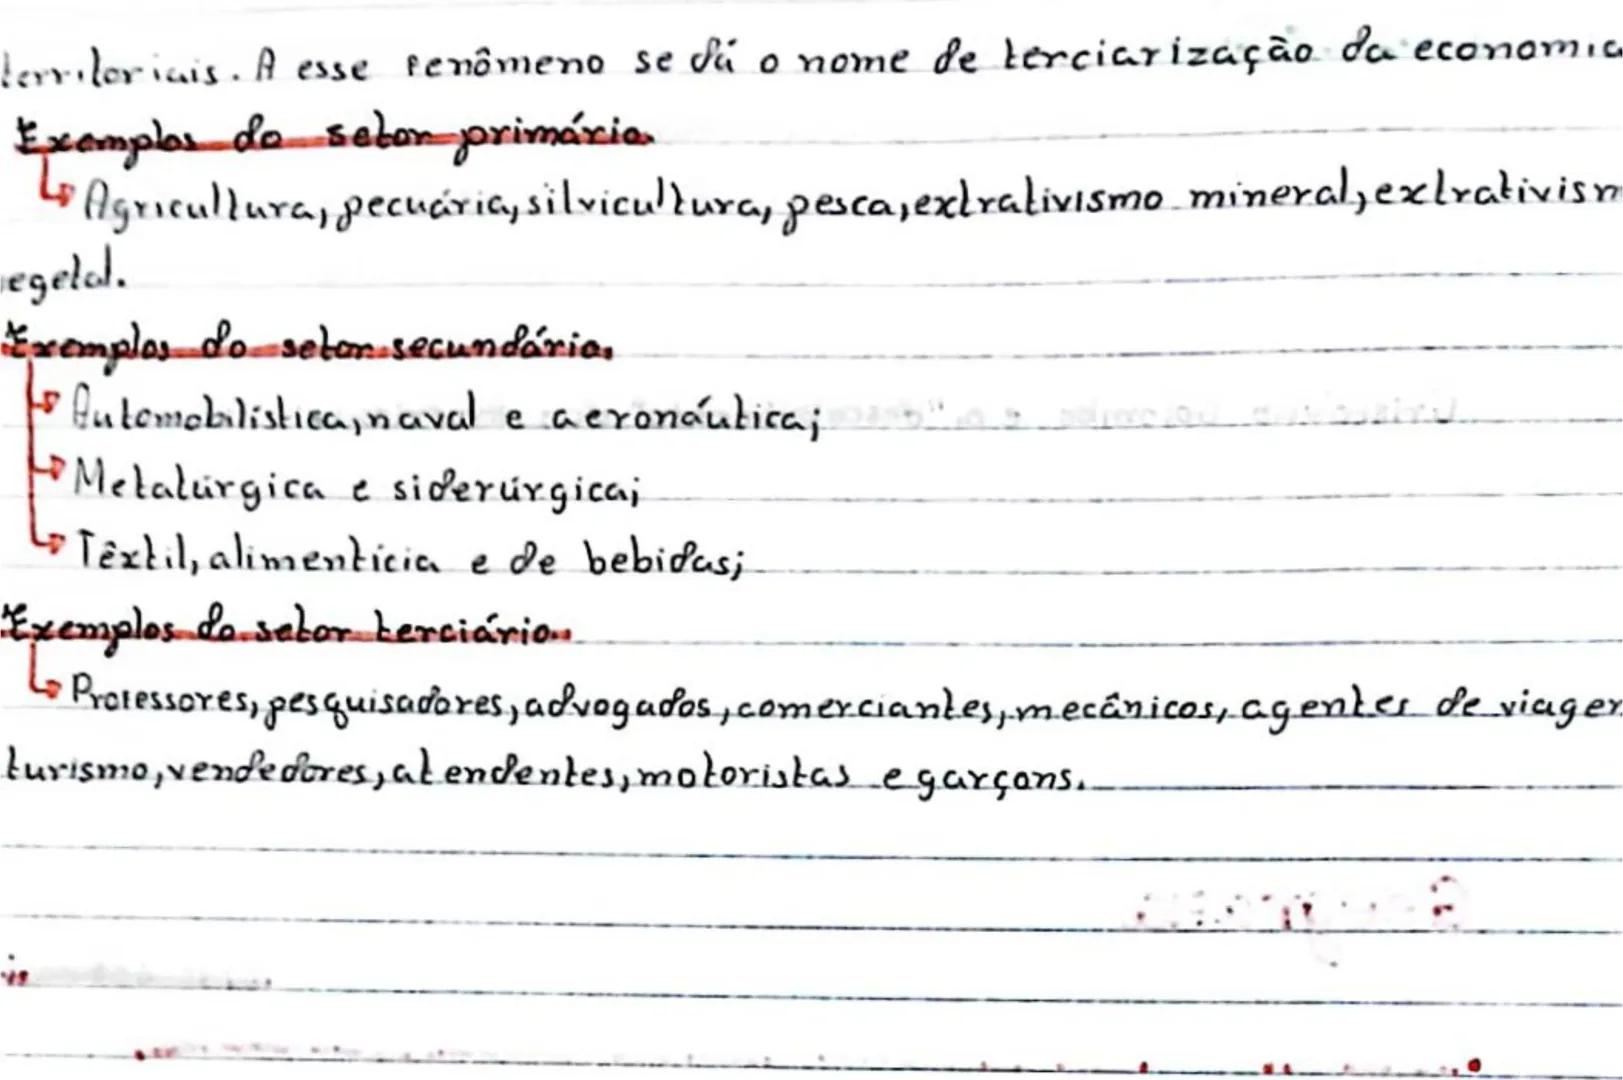 territoriais. A esse fenômeno se dá o nome de terciarização da economia
Exemplos do setor primário.
Agricultura, pecuária, silvicultura, pesca, extrativismo mineral, extrativism
egetal.
Exemplos do setor secundário.
Automobilística, naval e aeronáutica;
Metalúrgica e siderúrgica;
Têxtil, alimentícia e de bebidas;
Exemplos do setor terciário.
Professores, pesquisadores, advogados, comerciantes, mecânicos, agentes de viagen
turismo, vendedores, atendentes, motoristas e garçons.